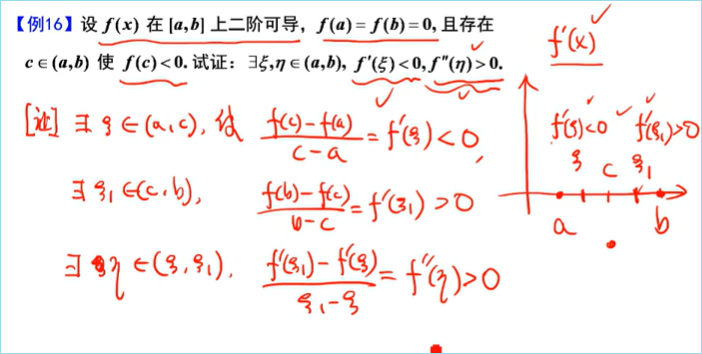 【例16】设 f(x) 在 [a,b] 上二阶可导，f(a)=f(b)=0, 且存在
c∈(a,b) 使 f(c)<0. 试证：∃ξ,η∈(a,b), f'(ξ)<0, f''(η)>0.
f'(x)
[证] ∃ ξ ∈(a,c), 使 f(c)-f(a) / c-a = f'(ξ)<0,
∃ ξ₁ ∈(c,b), f(b)-f(c) / b-c = f'(ξ₁)>0
∃ η ∈(ξ,ξ₁), f'(ξ₁)-f'(ξ) / ξ₁-ξ = f''(η)>0
f'(ξ)<0 f'(ξ₁)>0
ξ c ξ₁
a b